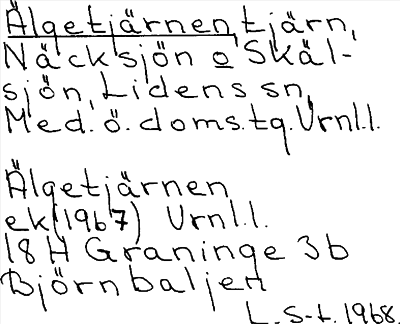 Älgetjärnen, tjärn,
Näcksjön o Skäl-
sjön, Lidens sn,
Med. ö. doms.tg. Vrnl.l.
Älgetjärnen
ek (1967) Vrnl.l.
18 H Graninge 3b
Björnbaljen
L. S-t. 1968.